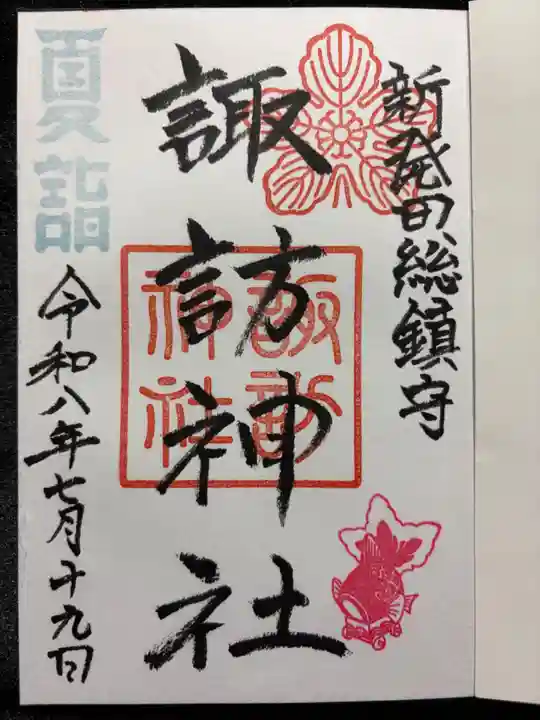 新発田総鎮守
諏訪神社
諏訪
神社
夏詣
令和八年七月十九日